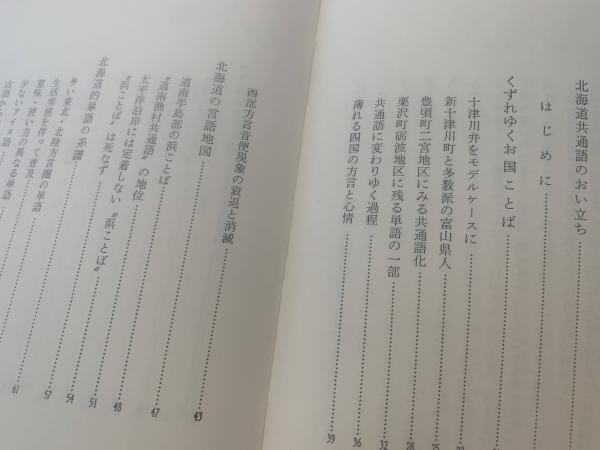 北海道共通語のおい立ち
はじめに
くずれゆくお国ことば
十津川弁をモデルケースに
新十津川町と多数派の富山県人 25
豊頃町二宮地区にみる共通語化 28
栗沢町砺波地区に残る単語の一部 32
共通語に変わりゆく過程 36
薄れる四国の方言と心情 39
西部方言音便現象の衰退と消滅 43
北海道の言語地図
道南半島部の浜ことば 47
"道南漁村共通語"の地位 48
太平洋沿岸には定着しない"浜ことば" 51
"浜ことば"は死なず
北海道的単語の系譜 54
多い東北・北陸方言圏の単語 57
生活実感を伴って普及
意味・使い方の異なる単語 61
少ないアイヌ語
古語か